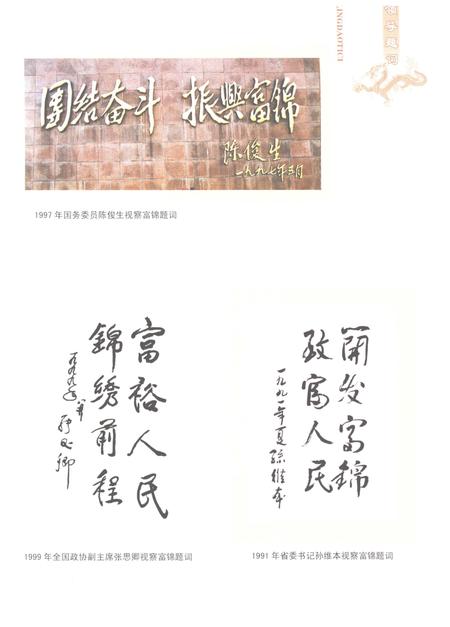 领导题词
LINGDAOTICI
團结奋斗 振興富錦
陈俊生
一九九七年三月
1997 年国务委员陈俊生视察富锦题词
富裕人民
錦绣前程
一九九九年
张思卿
開发富錦
致富人民
一九九一年夏 孙维本
1999 年全国政协副主席张思卿视察富锦题词
1991 年省委书记孙维本视察富锦题词